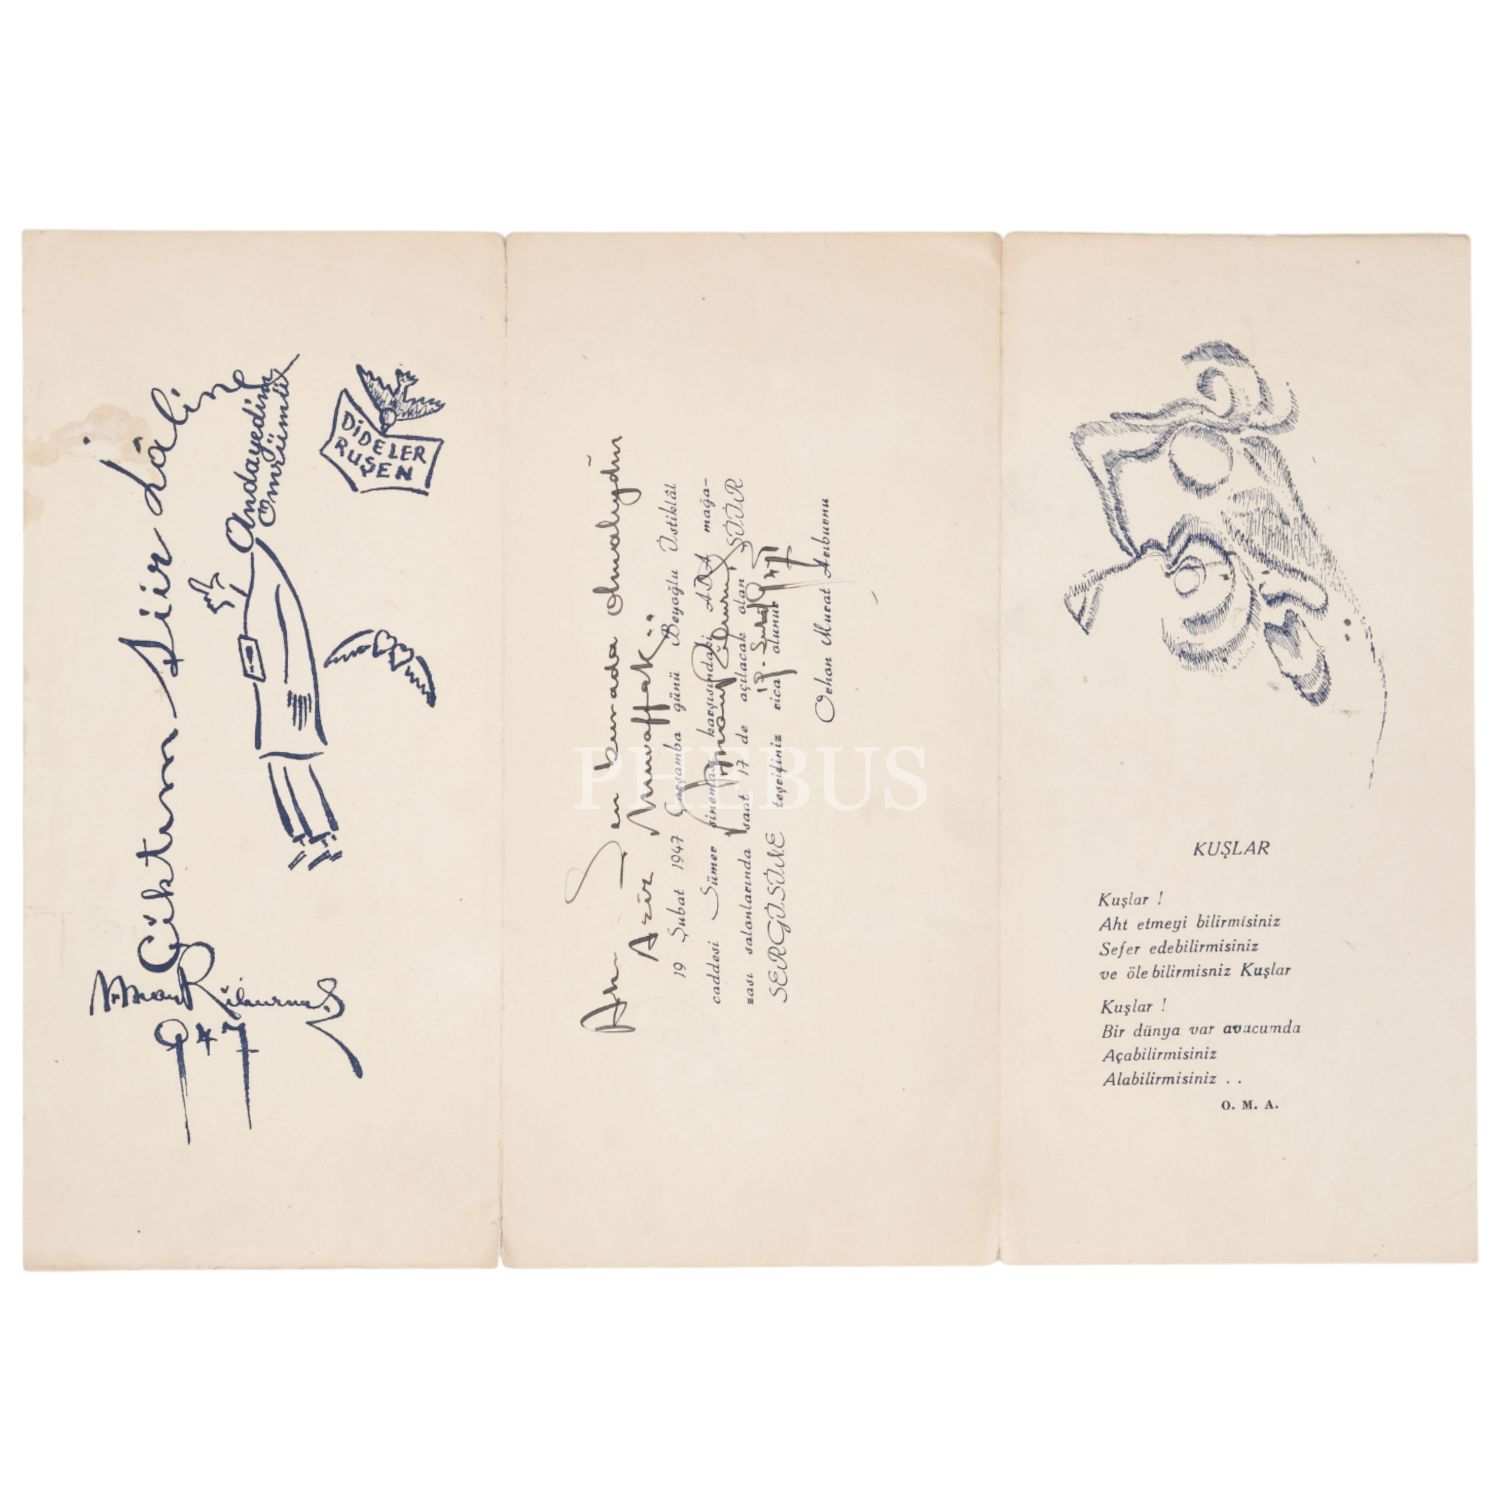 Çıktım Şiir Dâline
Andayedim
Ömrümü
DİDELER
RUŞEN
947
Ah. Sen burada Olmalıydın
Aziz Muvaffak..
19 Şubat 1947 Çarşamba günü Beyoğlu İstiklâl
caddesi Sümer sineması karşısındaki ADA mağa-
zası salonlarında saat 17 de açılacak olan ŞİİR
SERGİSİNE teşrifiniz rica olunur
Orhan Murat Arıburnu
PHEBUS
KUŞLAR
Kuşlar !
Aht etmeyi bilirmisiniz
Sefer edebilirmisiniz
ve öle bilirmisniz Kuşlar
Kuşlar !
Bir dünya var avucumda
Açabilirmisiniz
Alabilirmisiniz . .
O. M. A.